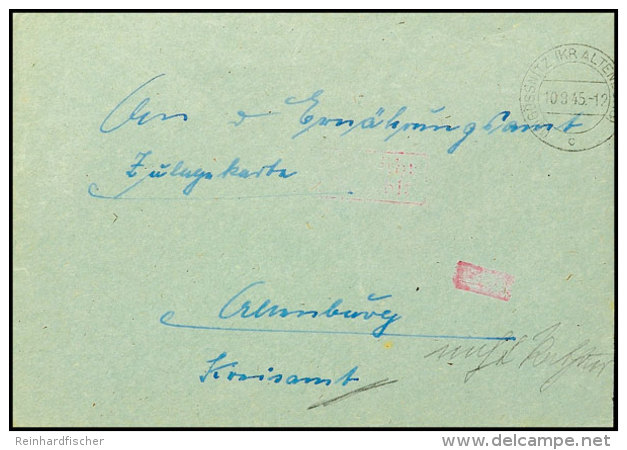 GÖSSNITZ (KR ALTENB
10.9.45.-12
c
An d Ernährungsamt
Zulagekarte
Altenburg
Kreisamt
Reinhardfischer
delcampe.net